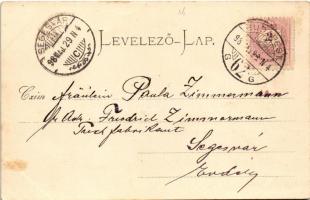 LEVELEZŐ-LAP.
SEGESVÁR
Czim Fräulein Paula Zimmermann
Adr. Friedrich Zimmermann
Tuchfabrikant
Segesvár
Erdély